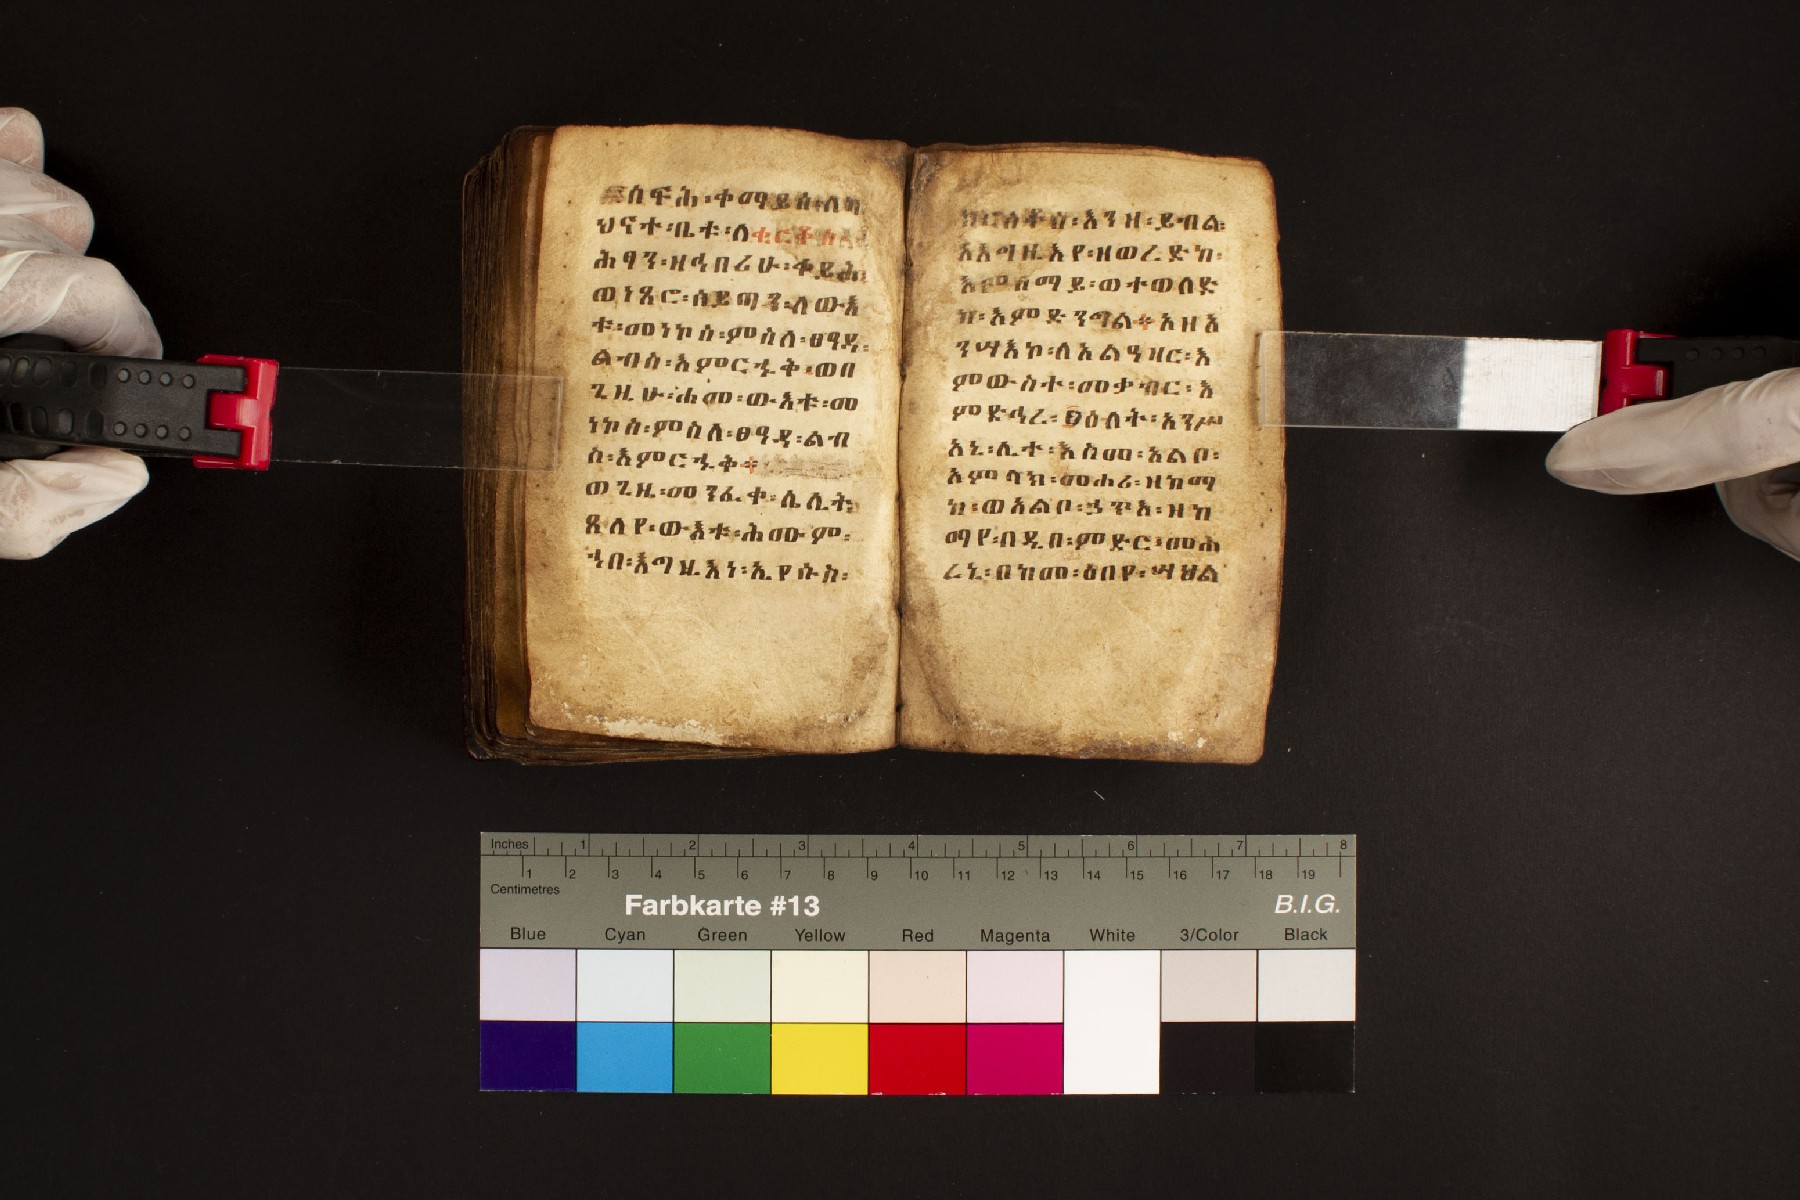 ስፍሕ፡ቀማይሰ፡ለካ
ህናተ፡ቤቱ፡ለቂርቆስ
ሕፃን፡ዘኀበሪሁ፡ቆይሕ፡
ወነጺሮ፡ሰይጣን፡ለውእ
ቱ፡መነኮስ፡ምስለ፡ፀዓዳ፡
ልብስ፡እምርኁቅ፡ወበ
ጊዜሁ፡ሐመ፡ውእቱ፡መ
ነኮስ፡ምስለ፡ፀዓዳ፡ልብ
ስ፡እምርኁቅ፨
ወጊዜ፡መንፈቀ፡ሌሊት፡
ጸለየ፡ውእቱ፡ሕሙም፡
ኀበ፡እግዚእነ፡ኢየሱስ፡
ክርስቶስ፡እንዘ፡ይብል፡
እእግዚእየ፡ዘወረድከ፡
እምሰማይ፡ወተወለድ
ከ፡እምድንግል፨አዘአ
ንሣእኮ፡ለአልዓዛር፡እ
ምውስተ፡መቃብር፡እ
ምድኅረ፡፬ዕለት፡አንሥ
አኒ፡ሊተ፡እስመ፡አልቦ፡
አምላክ፡መሐሪ፡ዘከማ
ከ፡ወአልቦ፡ኃጥእ፡ዘከ
ማየ፡በዲበ፡ምድር፡መሐ
ረኒ፡በከመ፡ዕበየ፡ሣህል
Inches 1 2 3 4 5 6 7 8
1 2 3 4 5 6 7 8 9 10 11 12 13 14 15 16 17 18 19
Centimetres
Farbkarte #13 B.I.G.
Blue Cyan Green Yellow Red Magenta White 3/Color Black